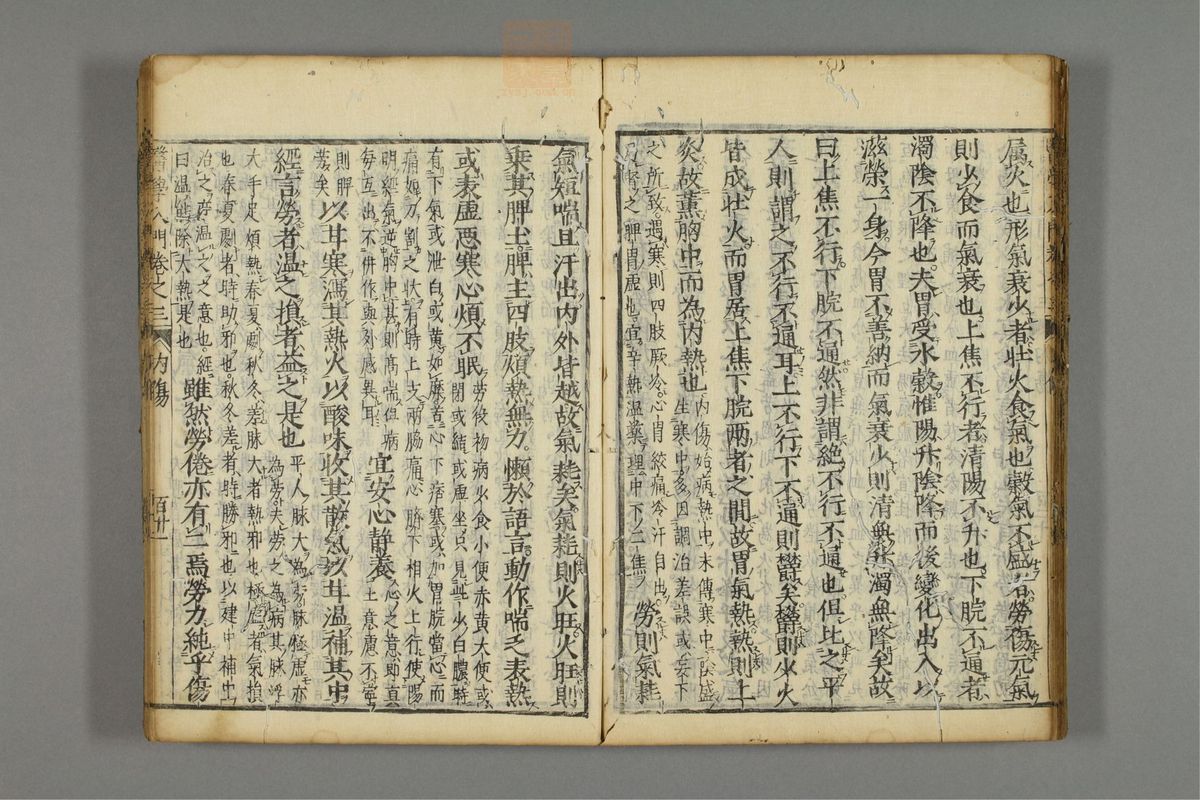 属火也形氣衰少者壯火食氣也穀氣不盛者勞傷元氣
則少食而氣衰也上焦不行者清陽不升也下脘不通者
濁陰不降也夫胃受水穀惟陽升陰降而後變化出入以
滋榮一身今胃不善納而氣衰少則清無升濁無降矣故
曰上焦不行下脘不通然非謂絶不行不通也但比之平
人則謂之不行不通耳上不行下不通則鬱矣鬱則少火
皆成壯火而胃居上焦下脘兩者之間故胃氣熱熱則上
炎故薰胸中而為内熱也
内傷始病熱中末傳寒中
生寒中多因調治差誤或妄下
之所致遇寒則四肢厥冷心胃絞痛冷汗自出
乃腎之脾胃虛也宜辛熱温藥理中下二焦
勞則氣耗
氣短喘且汗出内外皆越故氣耗矣氣耗則火旺火旺則
乘其脾土脾主四肢煩熱無力懶於語言動作喘乏表熱
或表虛惡寒心煩不眠
勞役初病火食小便赤黄大便或
閉或結或虛坐只見些少白膿時
有下氣或泄白或黄如糜若心下痞塞或加胃脘當心而
痛如刀割之狀有時上支兩脇痛心臍下相火上行使陽
明經氣逆胸中甚則高喘但病
每互出不併作與外感異耳
宜安心静養
心之意即真
土意慮不寧
則脾
勞矣
以甘寒瀉其熱火以酸味收其散氣以甘温補其中
經言勞者温之損者益之是也
平人脉大為勞脉極虛亦
為勞夫勞之為病其脉浮
大手足煩熱春夏劇秋冬差脉大者熱邪也極虛者氣損
也春夏劇者時助邪也秋冬差者時勝邪也以建中補中
治之亦温之之意也經
曰温能除大熱是也
雖然勞倦亦有二焉勞力純乎傷
醫學入門卷之三
内傷
百廿一